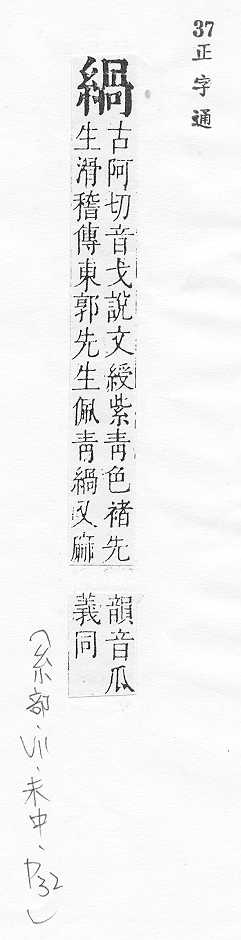 37正字通
緺
古阿切音戈說文綬紫靑色褚先
生滑稽傳東郭先生佩靑緺又麻
韻音瓜
義同
(糸部·VII·未中·P32)